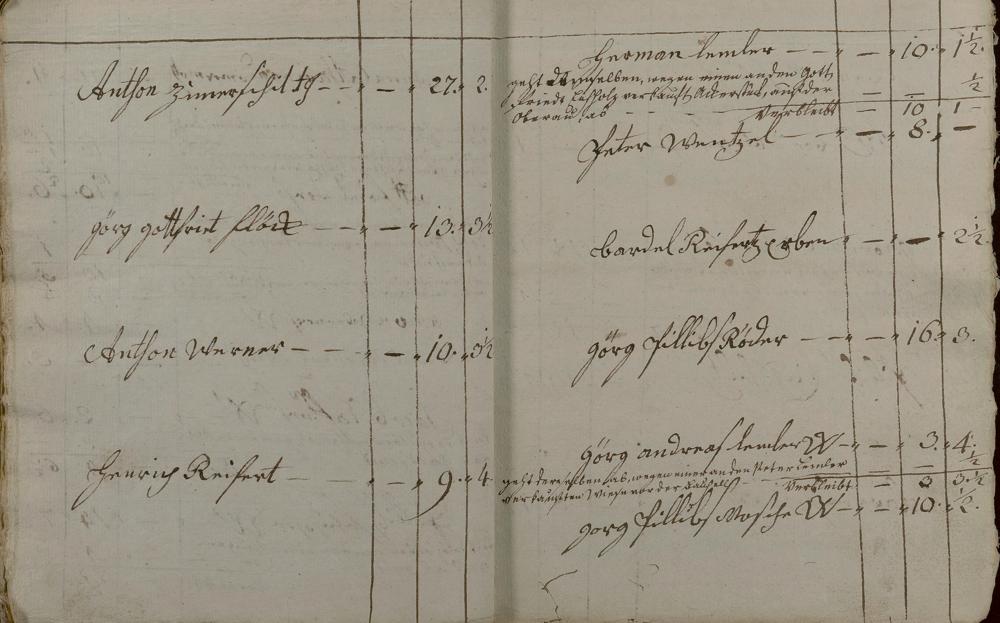 Anthon Zimerschit — — " — " 27. " 2.
görg gottfriet flöck — — " — " 13. " 3½
Anthon Werner — — " — " 10. " 3½
Henrich Reifert — — " — " 9. " 4.
Herman Lemler — — " — " 10. " 1½.
geht demselben, wegen einen an den Gott
friedt verkauft Ackerstück, auf der — ½
Oberau, ab — — — Verbleibt — 10 1 —
Peter Wentzel — — " — " 8. " —
bardel Reifertz Erben " — " — " 2½.
görg Pillibs Röder — — " — " 16. " 3.
görg andreas lemler — " — " 3. " 4.
geht derselben, ab, wegen einer an den Peter Lemler — — ½
verkauften Wiese vor der — Verbleibt — 3 3½
görg Pillibs Nosche — " — " 10. " ½.